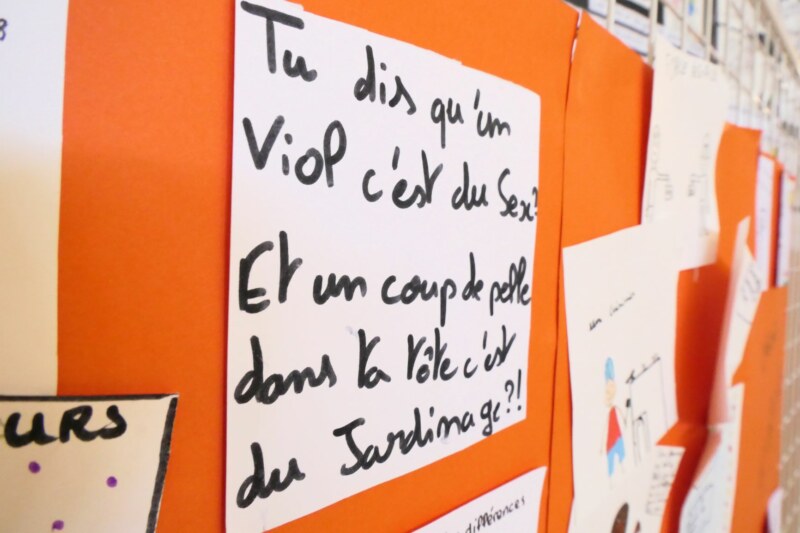 Tu dis qu'un
Viol c'est du Sexe?
Et un coup de pelle
dans ta tête c'est
du Jardinage?!
URS
différences